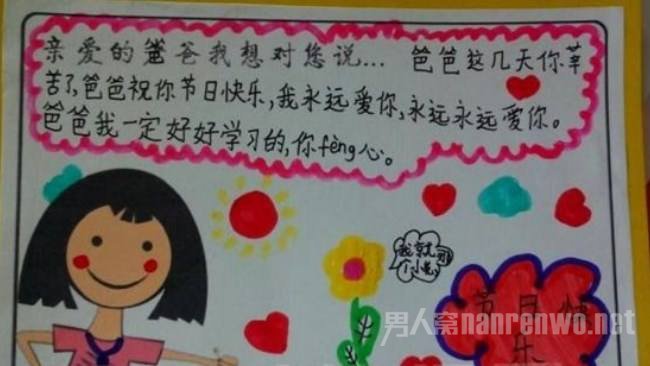 亲爱的爸爸我想对您说... 笆笆这几天你莘
苦了,笆笆祝你节日快乐,我永远爱你,永远永远爱你。
笆笆我一定好好学习的,你fèng心。
我就
个小
节日快
乐
男人窝nanrenwo.net